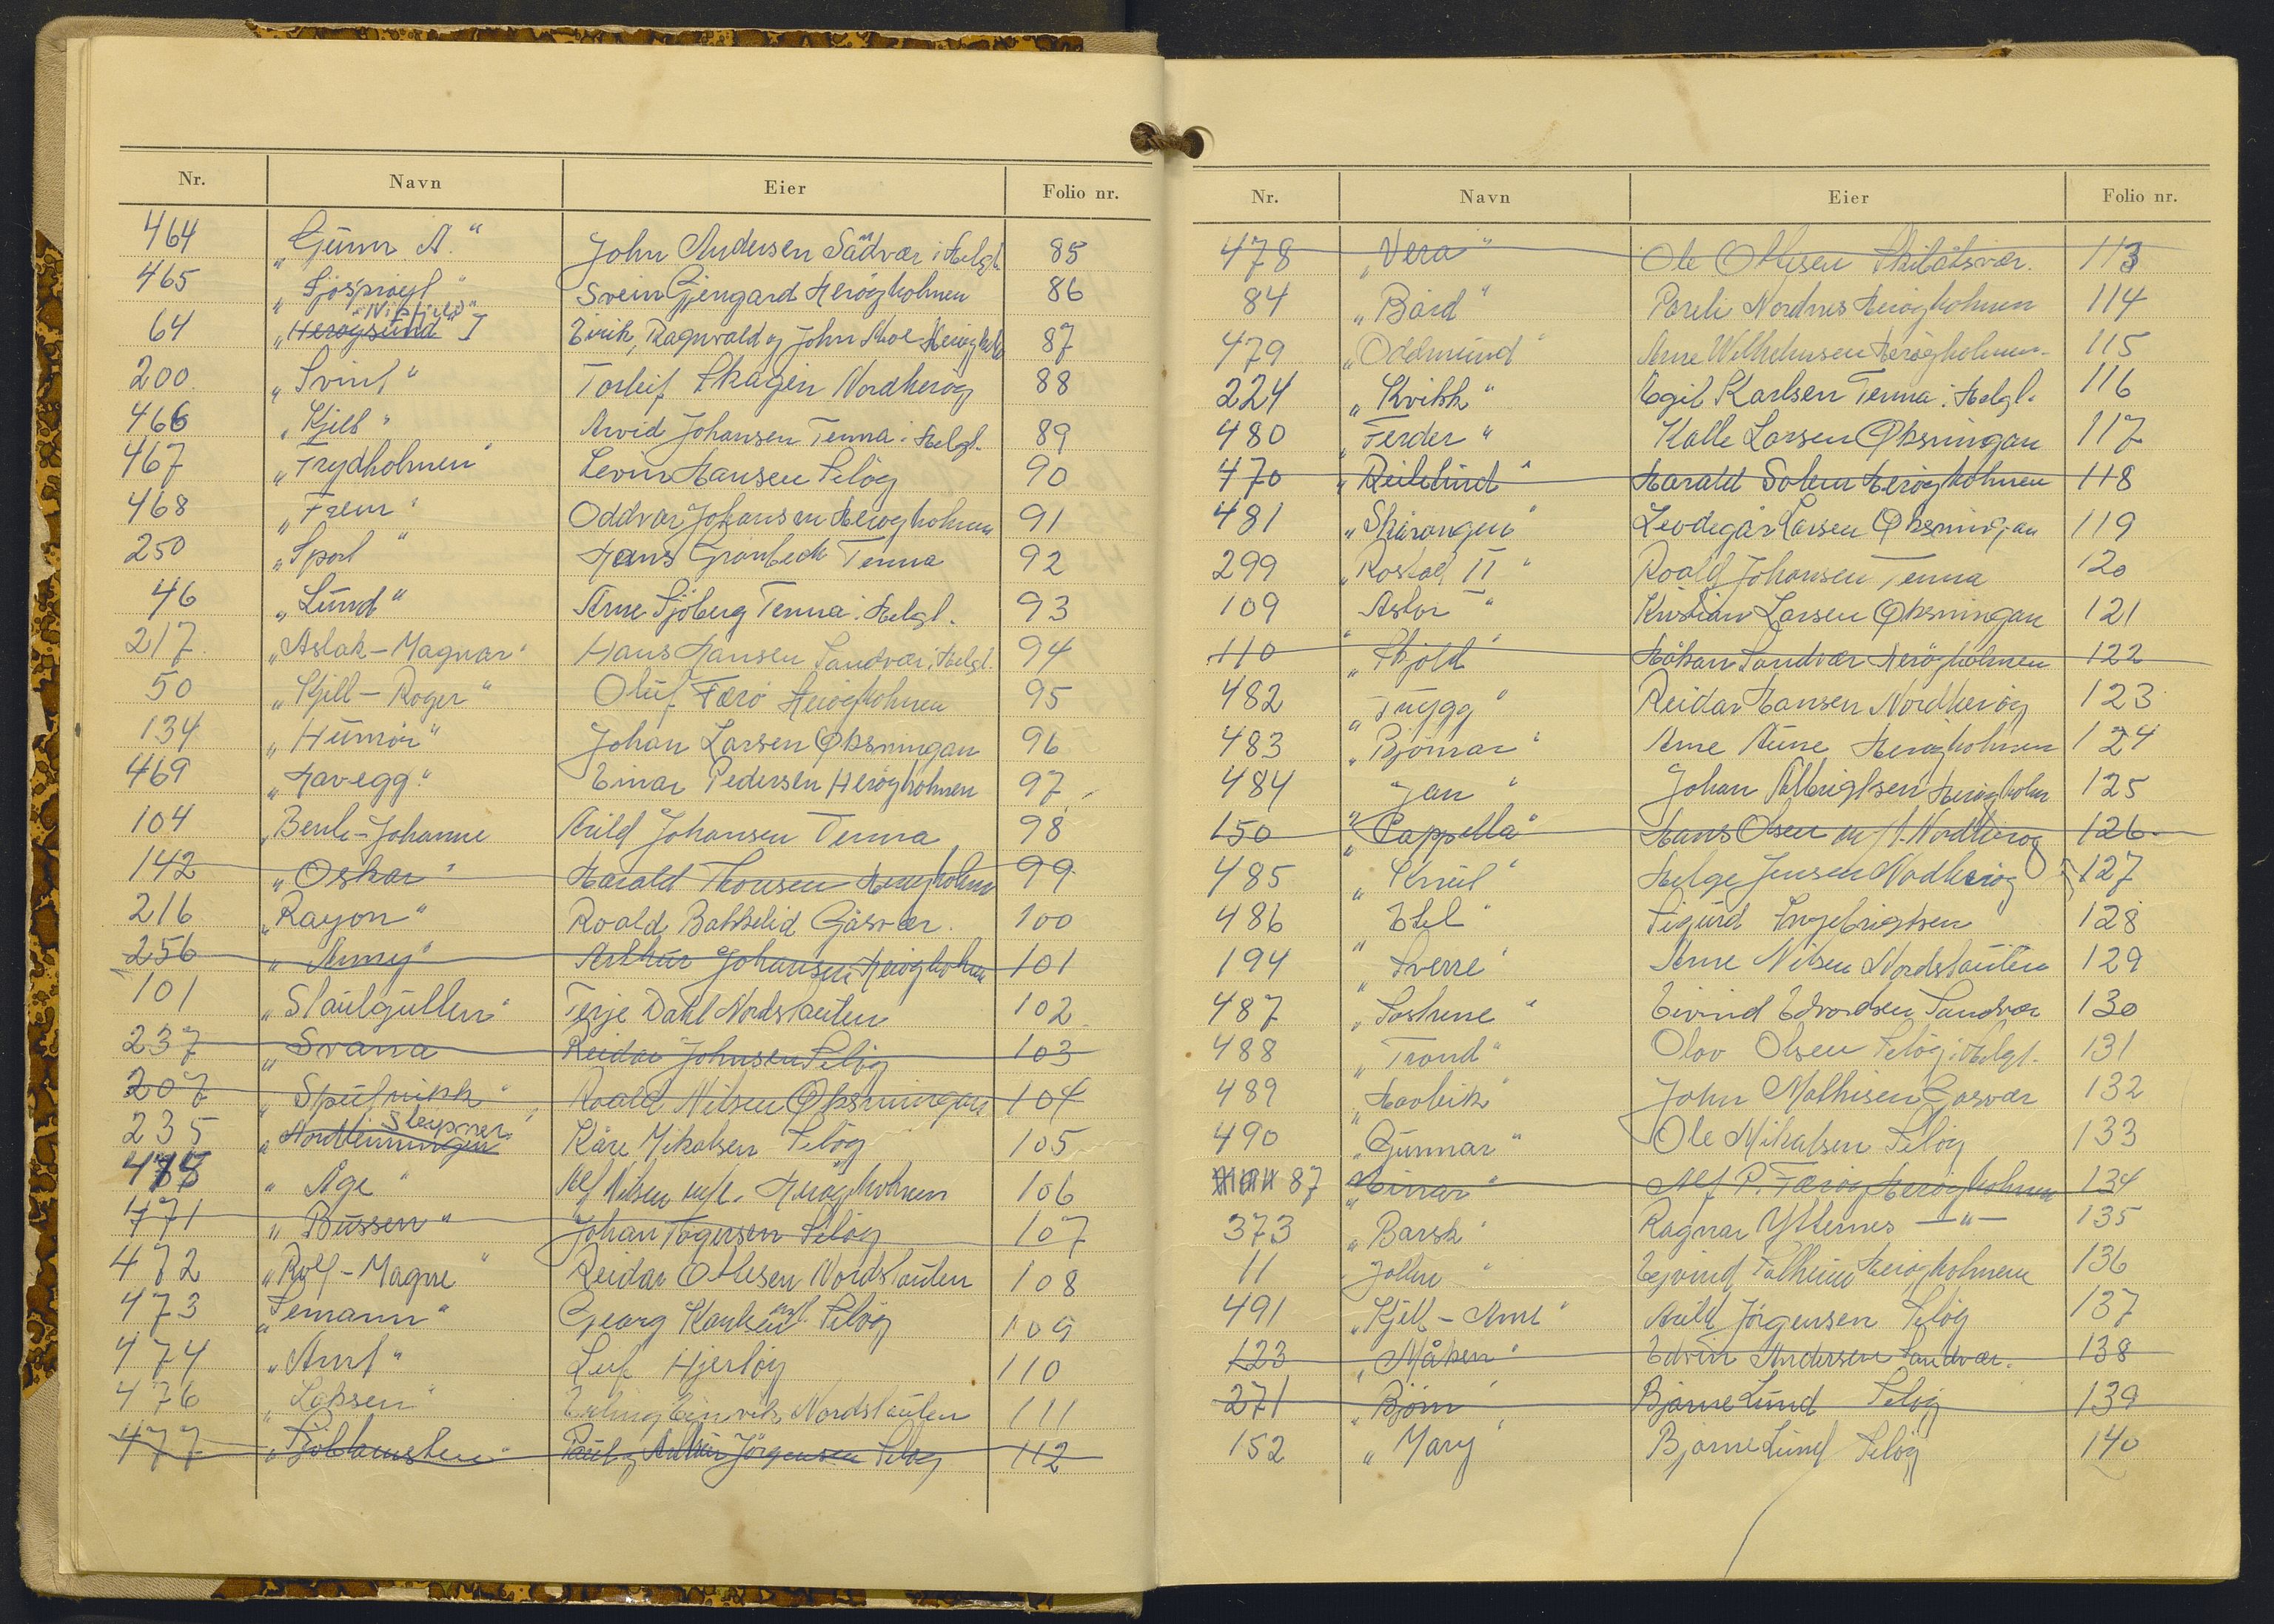 Nr. Navn Eier Folio nr.
464 „Gunn A." John Andersen Sandvær i Helgl. 85
465 „Sjøsprøyt" Svein Gjengard Herøyholmen 86
"Nipfjeld"
64 „Herøysund" I Eirik, Ragnvald og John Moe Herøyholm 87
200 „Svint" Torleif Skagen Nordherøy 88
466 „Kjell" Arvid Johansen Tenna i Helgl. 89
467 „Frydholmen" Levin Hansen Seløy 90
468 „Frem" Oddvar Johansen Herøyholmen 91
250 „Sport" Hans Grønbech Tenna 92
46 „Lund" Arne Sjøberg Tenna i Helgl. 93
217 „Aslak-Magnar" Hans Hansen Sandvær i Helgl. 94
50 „Kjell-Roger" Oluf Færø Herøyholmen 95
134 „Humør" Johan Larsen Øksningan 96
469 „Havegg" Einar Pedersen Herøyholmen 97
104 „Bente-Johanne Arild Johansen Tenna 98
142 „Oskar" Harald Thonsen Herøyholmen 99
216 „Rayon" Roald Bakkelid Gåsvær 100
256 „Anny" Arthur Johansen Herøyholmen 101
101 „Staulgutten" Terje Dahl Nordstaulen 102
237 „Svana Reidar Johnsen Seløy 103
207 „Sputnikk" Roald Nilsen Øksningan 104
Sleipner"
235 „ Kåre Mikalsen Seløy 105
478 „Åge" Alf Nilsen m/fl. Herøyholmen 106
471 „Bussen" Johan Togersen Seløy 107
472 „Rolf-Magne" Reidar Ottesen Nordstaulen 108
473 „Semann" Georg Karlsen m/fl. Seløy 109
474 „Arnt" Leif Hjertøy 110
476 „Laksen" Erling Einvik Nordstaulen 111
477 „Fjeltensten" Paul og Arthur Jørgensen Seløy 112
Nr. Navn Eier Folio nr.
478 „Vera" Ole Ottesen Skibåtsvær. 113
84 „Bård" Pareli Nordnes Herøyholmen 114
479 „Oddmund" Arne Wilhelmsen Herøyholmen 115
224 „Kvikk" Egil Karlsen Tenna i Helgl. 116
480 „Ferder" Kalle Larsen Øksningan 117
470 „Reidulund" Harald Solem Herøyholmen 118
481 „Skarungen" Leodegar Larsen Øksningan 119
299 „Rostad II" Roald Johansen Tenna 120
109 „Astor" Kristian Larsen Øksningan 121
110 „Skjold" Håkon Sandvær Herøyholmen 122
482 „Trygg" Reidar Hansen Nordherøy 123
483 „Bjørnar" Arne Aune Herøyholmen 124
484 „Jan" Johan Albrigtsen Herøyholm 125
150 „Cappella" Hans Olsen m/fl. Nordherøy 126
485 „Knut" Helge Jensen Nordherøy 127
486 „Etel" Sigurd Ingebrigtsen 128
194 „Sverre" Arne Nilsen Nordstaulen 129
487 „Taskene" Eivind Edvardsen Sandvær 130
488 „Trond" Olav Olsen Seløy i Helgl. 131
489 „Havbrik" John Mathisen Gåsvær 132
490 „Gunnar" Ole Mikalsen Seløy 133
87 „Einar" Alf P. Færøy Herøyholmen 134
373 „Barsk" Ragnar Ytternes —"— 135
11 „Jolln" Ejvind Solheim Herøyholmen 136
491 „Kjell-Arne" Arild Jørgensen Seløy 137
123 „Måken" Edvin Andersen Sandvær. 138
271 „Bjørn" Bjarne Lund Seløy 139
152 „Mary" Bjarne Lund Seløy 140